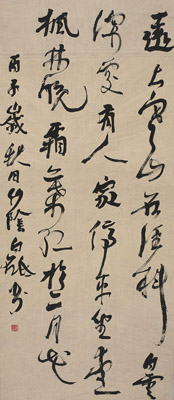 遠上寒山石徑斜白雲
深處有人家停車坐愛
楓林晚霜葉紅於二月花
丙子歲秋日山陰白砥書